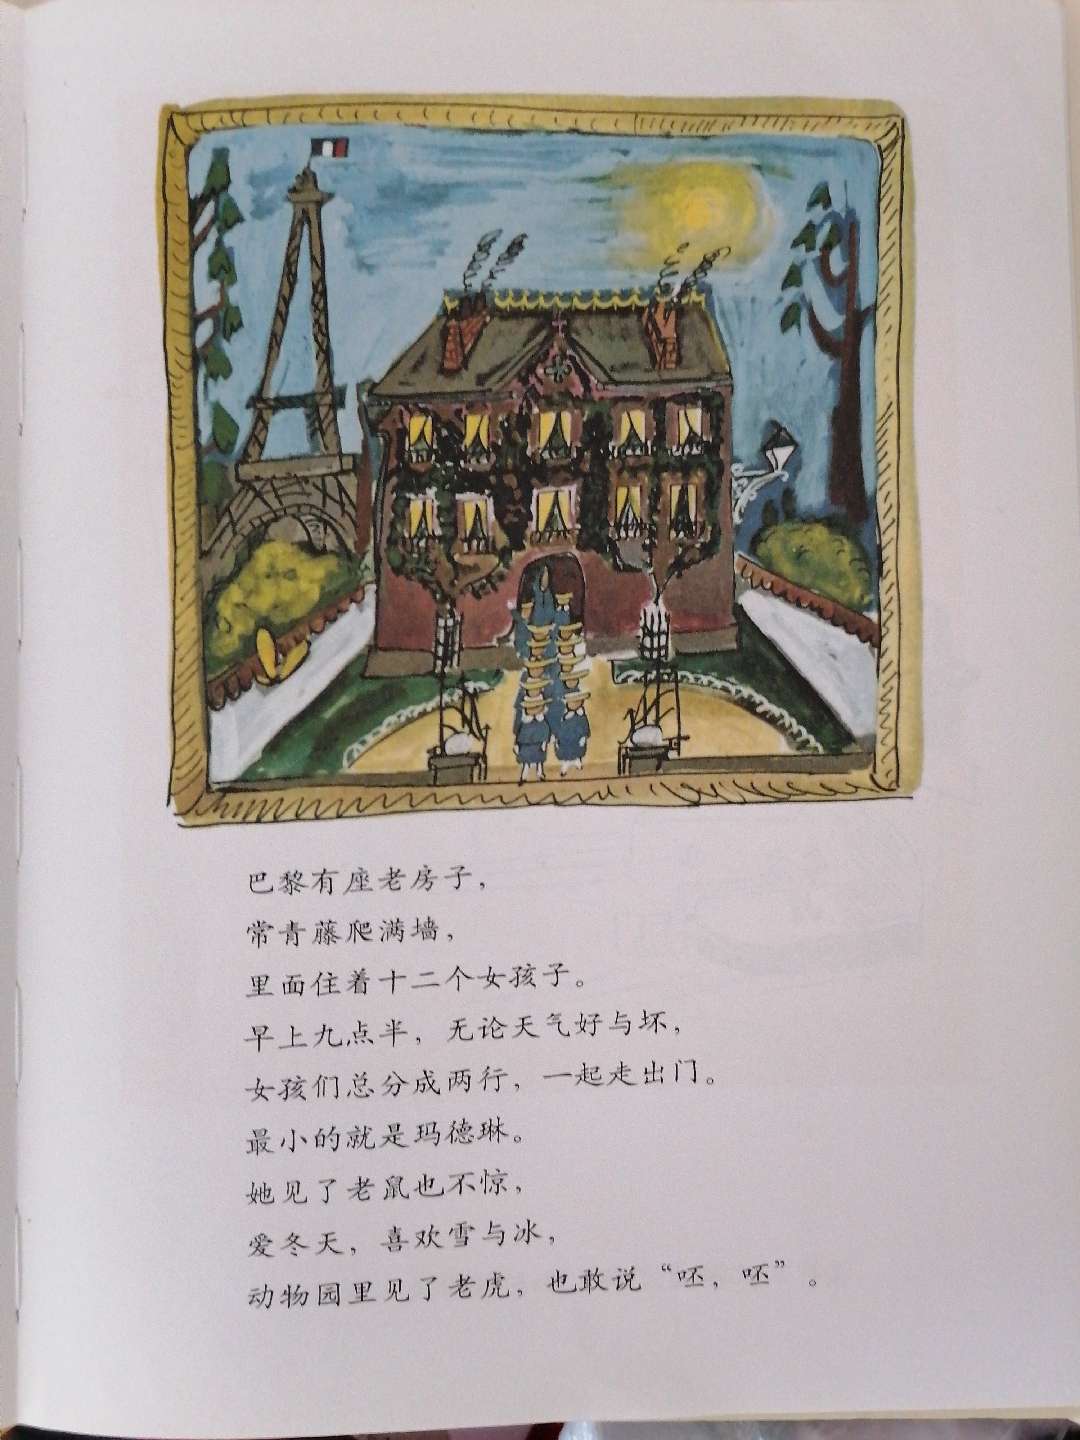 巴黎有座老房子，
常青藤爬满墙，
里面住着十二个女孩子。
早上九点半，无论天气好与坏，
女孩们总分成两行，一起走出门。
最小的就是玛德琳。
她见了老鼠也不惊，
爱冬天，喜欢雪与冰，
动物园里见了老虎，也敢说“呸，呸”。